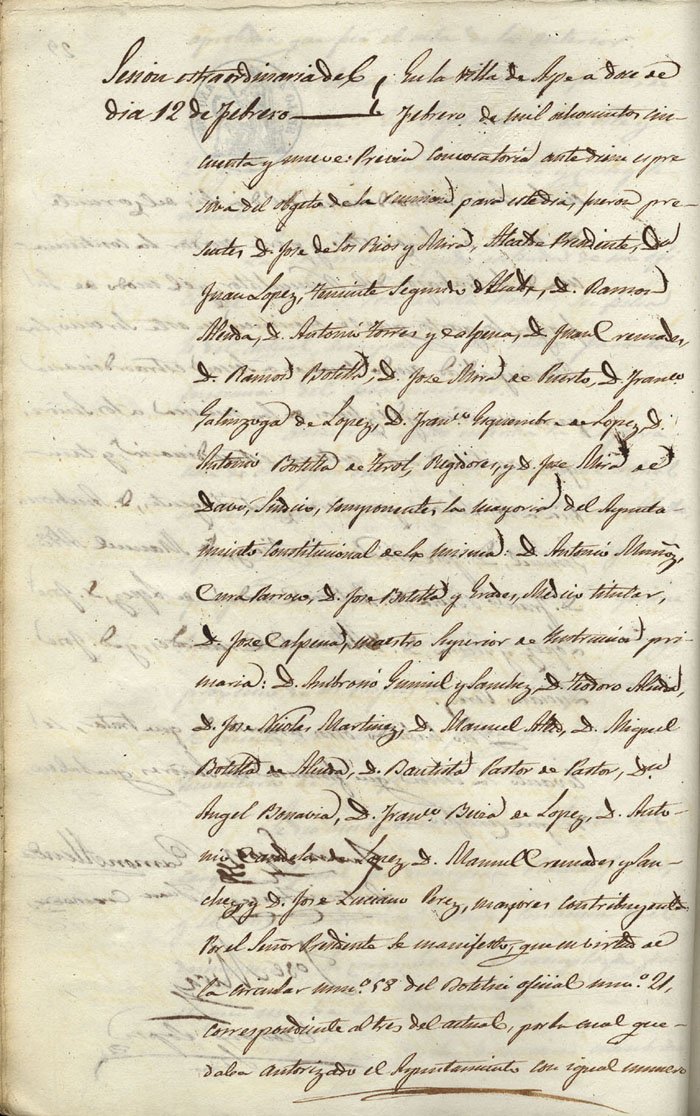 Sesion extraordinaria del
dia 12 de Febrero
En la villa de Aspe a doce de
Febrero de mil ochocientos cin
cuenta y nueve: Previa convocatoria ante diem espre
siva del objeto de la reunion para este dia, fueron pre
sentes, D. Jose de los Rios y Mira, Alcalde Presidente, Dn
Juan Lopez, teniente Segundo de Alcalde, D. Ramon
Alenda, D. Antonio Torres y Calpena, D. Juan Cremades,
D. Ramon Botella, D. Jose Mira de Puerto, D. Franco
Galinzoga de Lopez, D. Franco Esquembre de Lopez, D.
Antonio Botella de Terol, Regidores, y D. Jose Mira de
Davo, Sindico, componentes la mayoria del Ayunta
miento Constitucional de la misma: D. Antonio Muñoz,
Cura Parroco, D. Jose Botella y Gras, Medico titular,
D. Jose Calpena, maestro Superior de Instruccion pri
maria: D. Ambrosio Gumiel y Sanchez, D. Teodoro Alenda,
D. Jose Nicolas Martinez, D. Manuel D. Miguel
Botella de Alenda, D. Bautista Pastor de Pastor, Dn
Angel Bonavia, D. Franco de Lopez, D. Anto-
nio Candela de Lopez, D. Manuel Cremades y San-
chez, y D. Jose Luciano Perez, mayores contribuyentes
Por el Señor Presidente se manifesto, que en virtud de
la circular numo. 58 del Boletin oficial numo. 21,
correspondiente al tres del actual, por la cual que-
daba autorizado el Ayuntamiento con igual numero